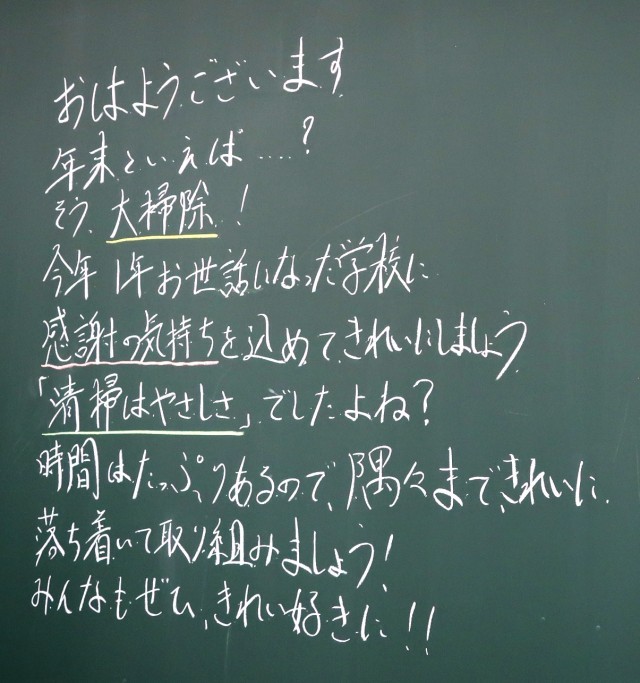 おはようございます
年末といえば....?
そう、大掃除!
今年1年お世話になった学校に
感謝の気持ちを込めてきれいにしましょう
「清掃はやさしさ」でしたよね?
時間はたっぷりあるので、隅々まできれいに
落ち着いて取り組みましょう!
みんなもぜひ、きれい好きに!!